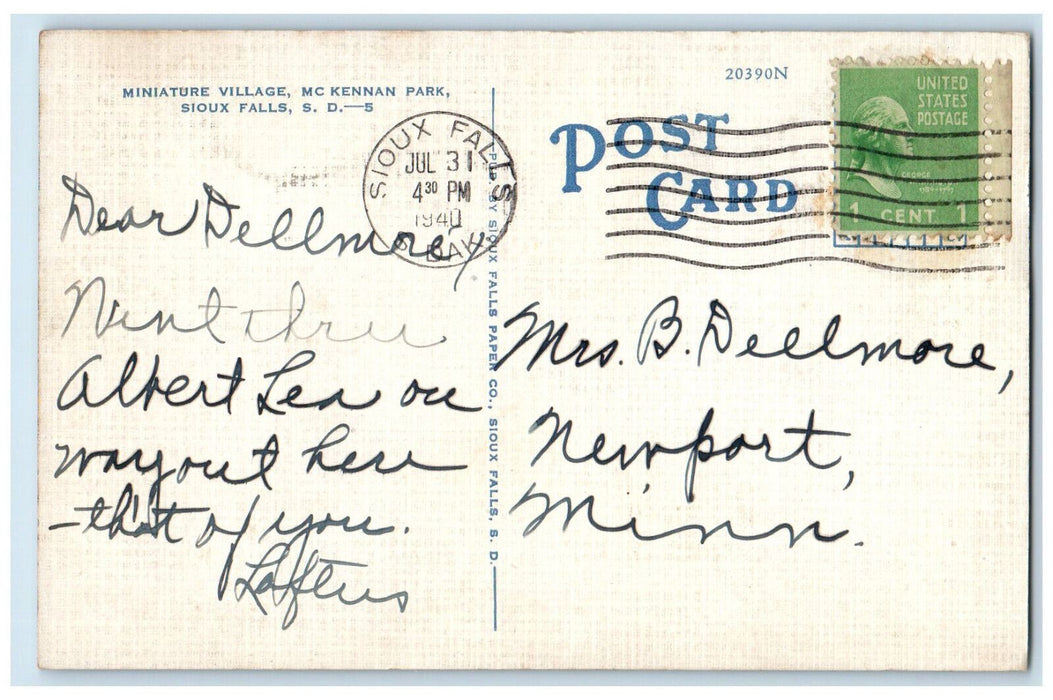 MINIATURE VILLAGE, MC KENNAN PARK,
SIOUX FALLS, S. D.—5
20390N
POST
CARD
UNITED
STATES
POSTAGE
GEORGE
1 CENT 1
SIOUX FALLS
JUL 31
4 30 PM
1940
S. DAK.
PUB. BY SIOUX FALLS PAPER CO., SIOUX FALLS, S. D.
Dear Dellmore,
Went thru
Albert Lea on
way out here
- th't of you.
Loftus
Mrs. B. Dellmore,
Newport,
Minn.